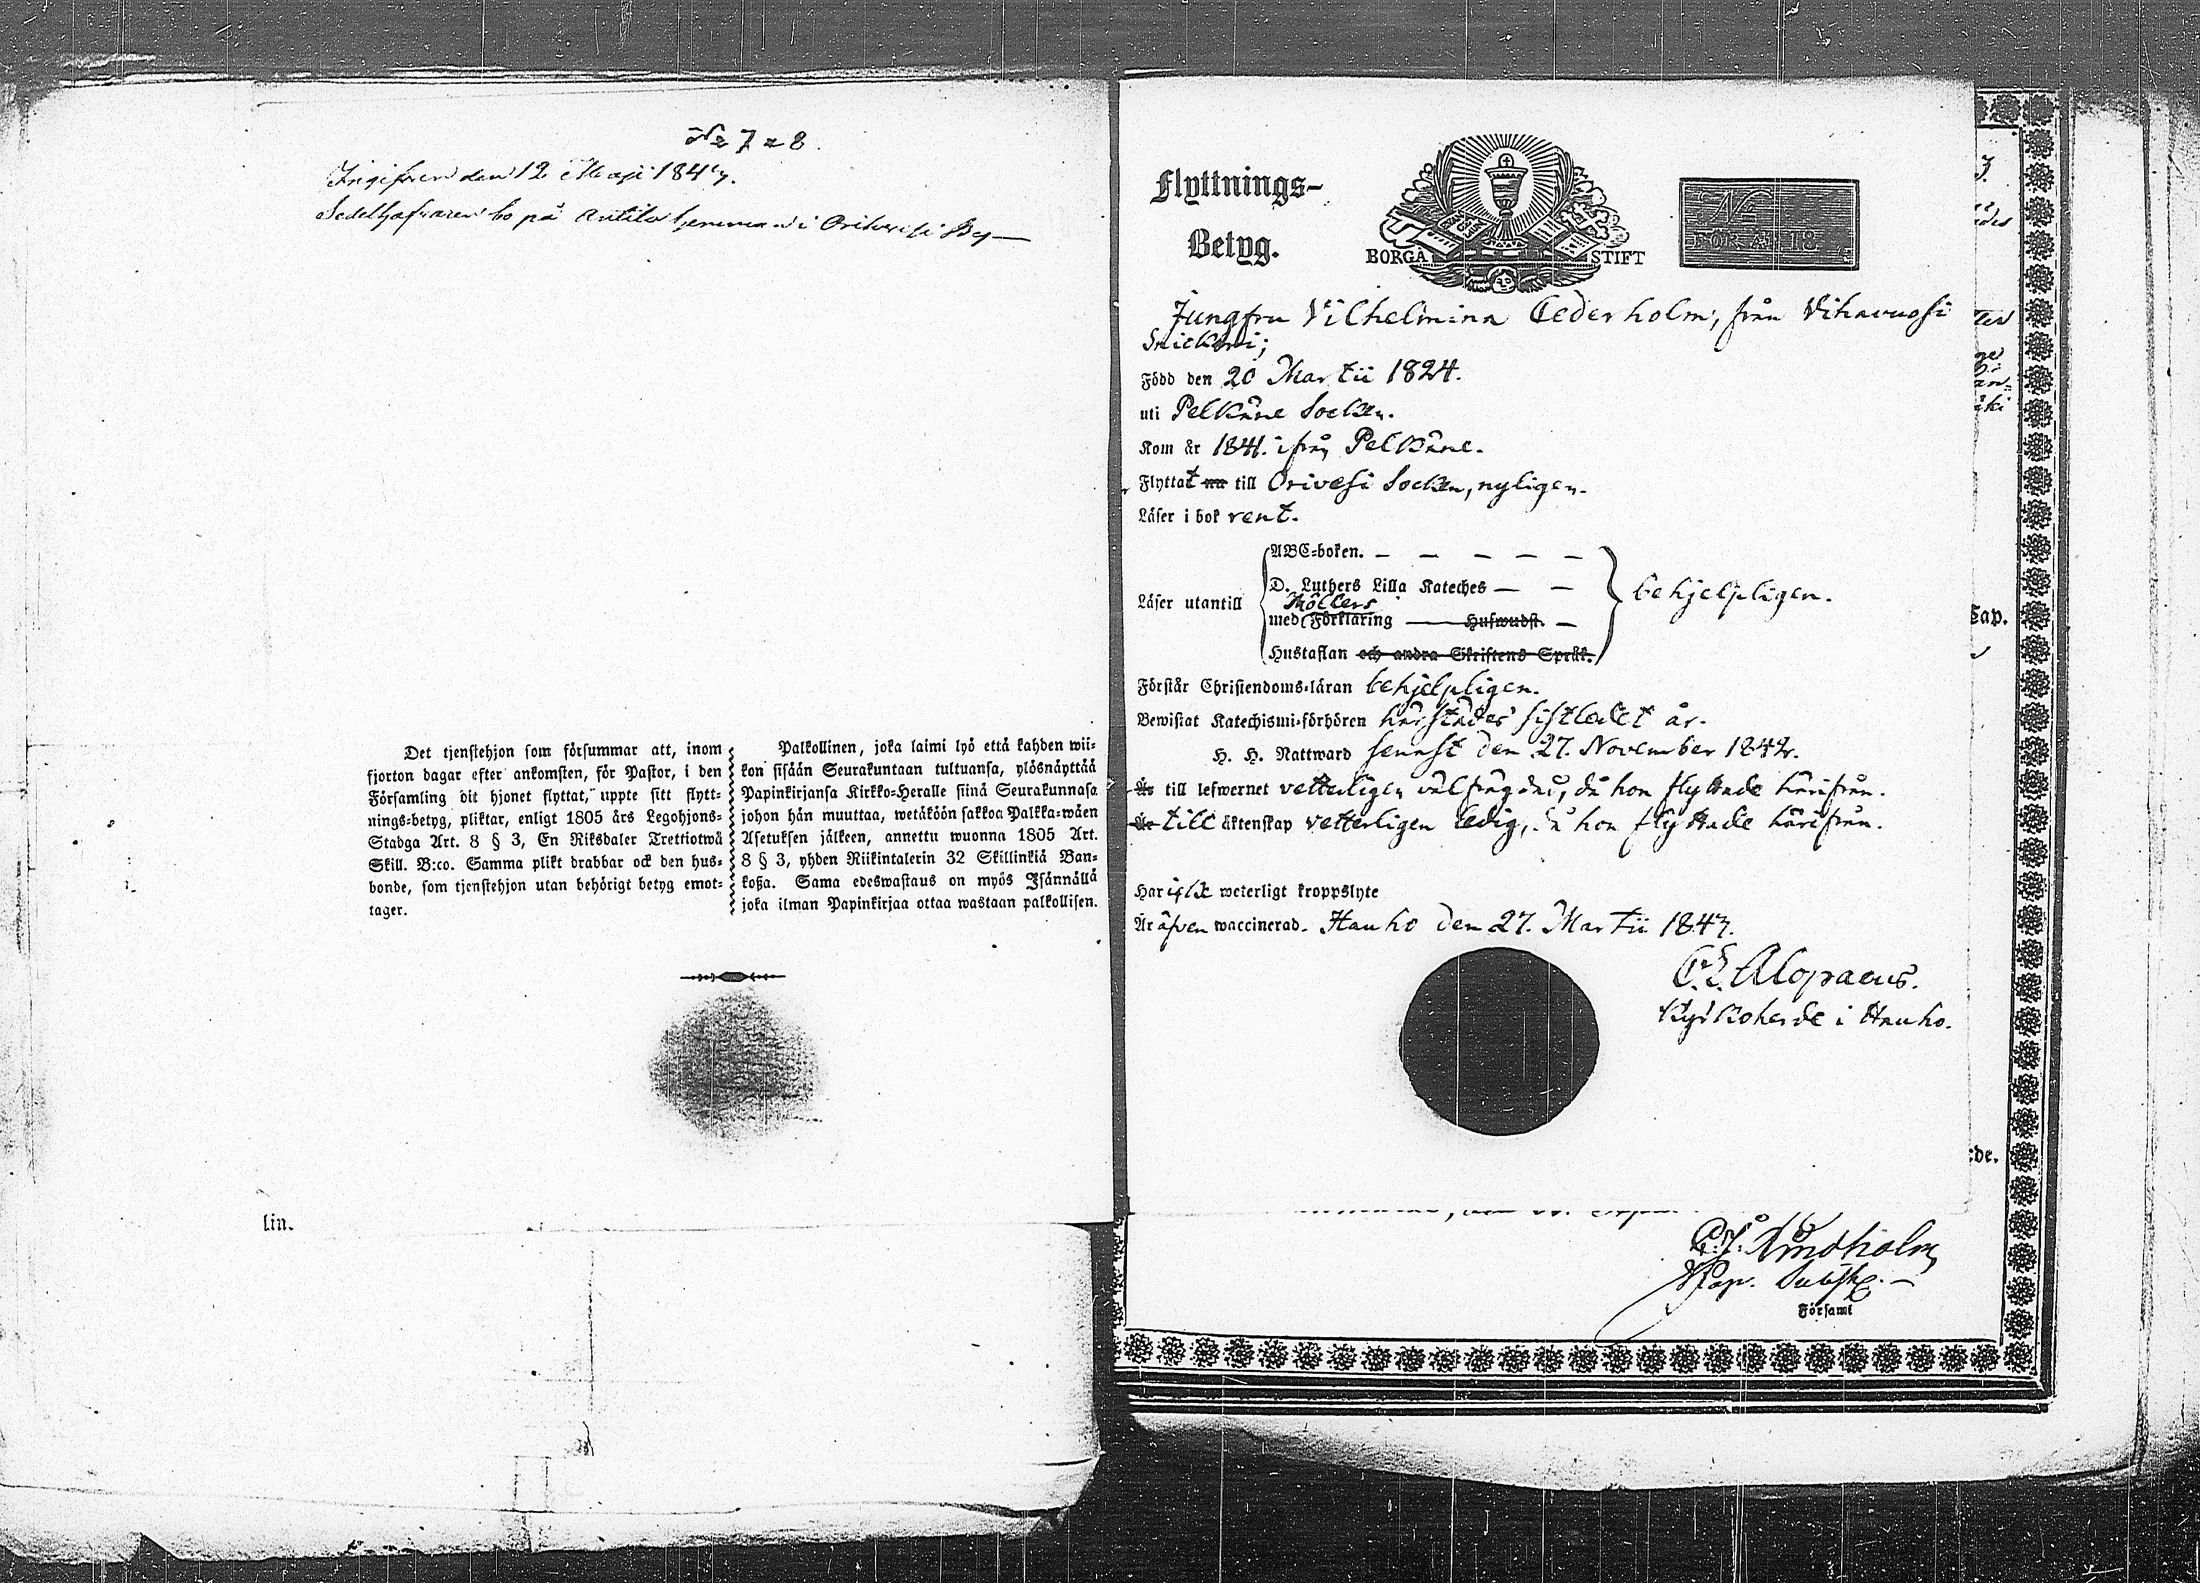 No 7 a 8.
Ingifven den 12 Maji 1843.
Sedelhafvaren bo på Antila hemman i Orihvesi By
Det tjenstehjon som försummar att, inom
fjorton dagar efter ankomsten, för Pastor, i den
Församling dit hjonet flyttat, uppte sitt flytt-
nings-betyg, pliktar, enligt 1805 års Legohjons-
Stadga Art. 8 § 3, En Riksdaler Trettiotwå
Skill. B:co. Samma plikt drabbar ock den hus-
bonde, som tjenstehjon utan behörigt betyg emot-
tager.
Palkollinen, joka laimi lyö että kahden wii-
kon sisään Seurakuntaan tultuansa, ylösnäyttää
Papinkirjansa Kirkko-Heralle siinä Seurakunnasa
johon hän muuttaa, wetäköön sakkoa Palkka-wäen
Asetuksen jälkeen, annettu wuonna 1805 Art.
8 § 3, yhden Riikintalerin 32 Skillinkiä Ban-
koßa. Sama edeswastaus on myös Isännällä
joka ilman Papinkirjaa ottaa wastaan palkollisen.
lin.
Flyttnings-
Betyg.
BORGÅ STIFT
No
FÖR ÅR 18
Jungfru Vilhelmina Cederholm, från Vihavuosi
Snickari;
Född den 20 Martii 1824.
uti Pelkäne Socken.
Kom år 1841. ifrån Pelkäne.
Flyttat nu till Orivesi Socken, nyligen.
Läser i bok rent.
Läser utantill
ABC-boken. — — — — —
D. Luthers Lilla Kateches — —
Möllers
med Förklaring — Hufwudst. —
Hustaflan och andra Skriftens Språk.
behjelpligen.
Förstår Christendoms-läran behjelpligen.
Bewistat Katechismi-förhören härstädes sistledet år.
H. H. Nattward sennst den 27. November 1842.
Är till lefwernet vetterligen välfrägdad, då hon flyttade härifrån.
Är till äktenskap vetterligen ledig, då hon flyttade härifrån.
Har icke weterligt kroppslyte
Är äfven waccinerad. Hauho den 27. Martii 1843.
Alopaeus.
Kyrkoherde i Hauho.
Cap.
de.
Lindholm
Kap.
Församl